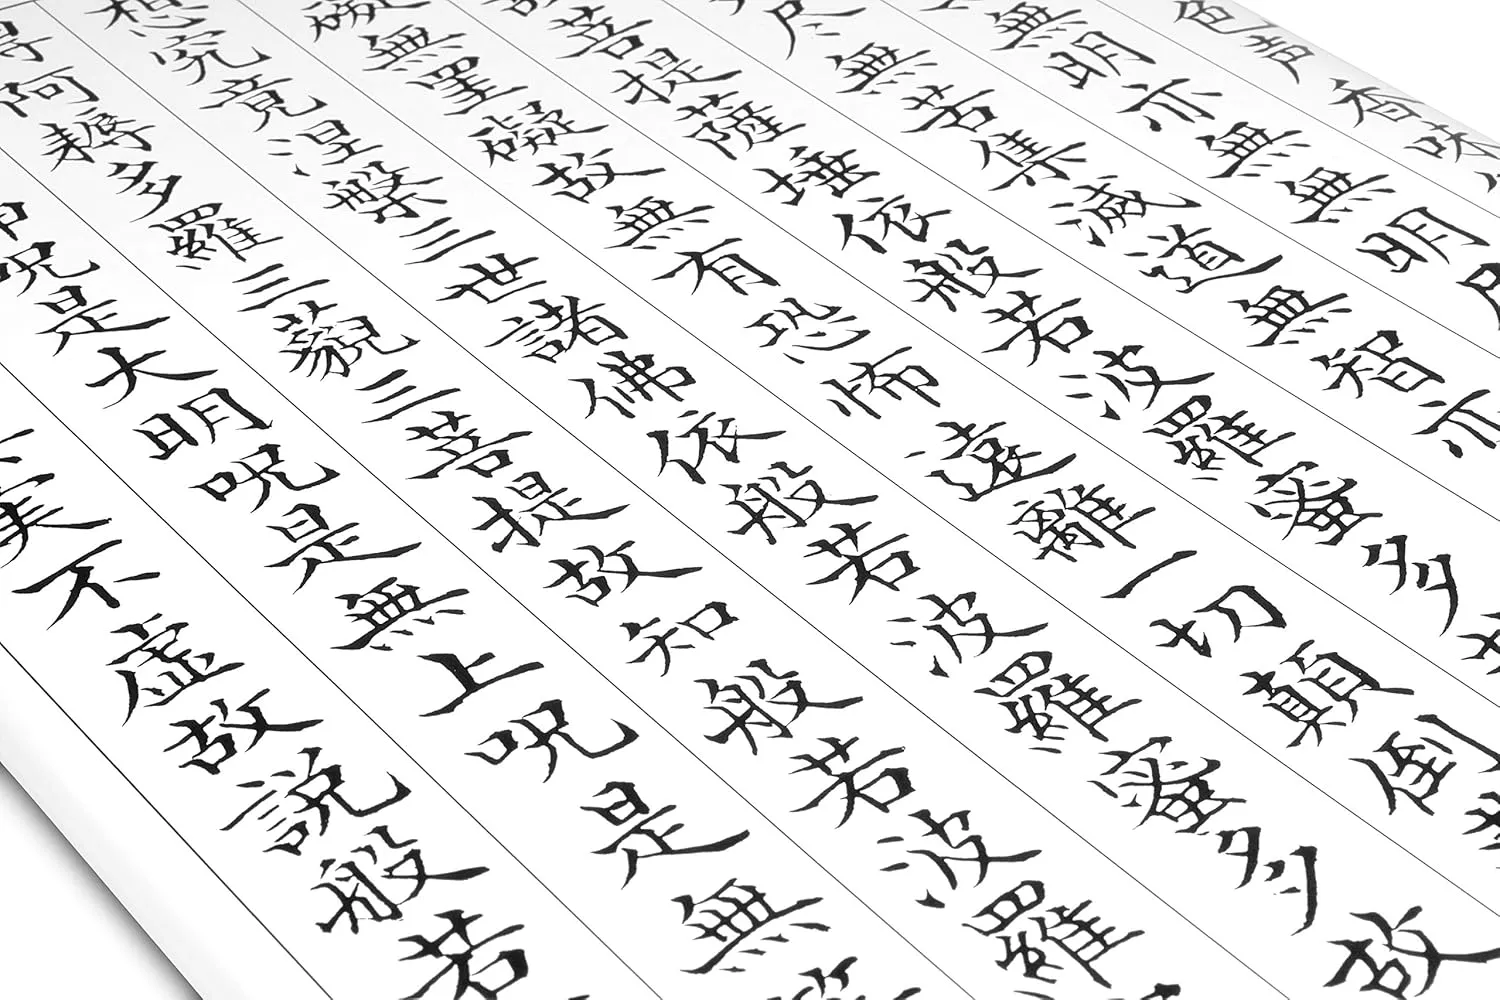 色声香味
無明亦無無明尽
尽無苦集滅道無智亦
菩提薩埵依般若波羅蜜多故
礙無罣礙故無有恐怖遠離一切顛倒
想究竟涅槃三世諸佛依般若波羅蜜多故
得阿耨多羅三藐三菩提故知般若波羅
神呪是大明呪是無上呪是無
実不虚故説般若